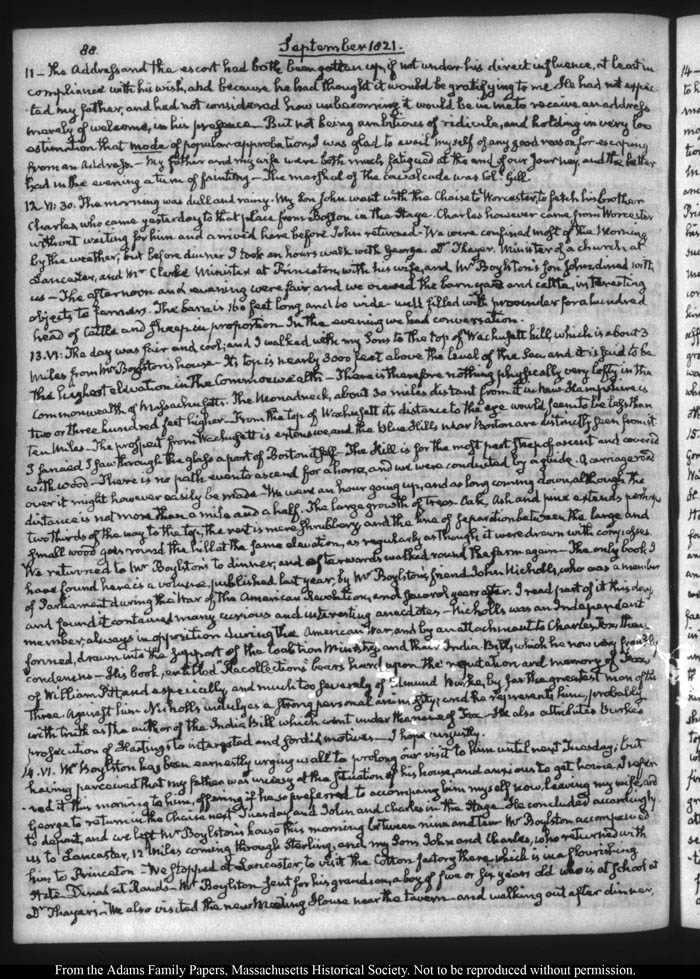 88.
September 1821.
11 - The Address and the escort had both been gotten up, if not under his direct influence, at least in
compliance with his wish, and because he had thought it would be gratifying to me. He had not expec-
-ted my father, and had not considered how unbecoming it would be in me to receive an address
merely of welcome, in his presence - But not being ambitious of ridicule, and holding in very low
estimation that mode of popular approbation, I was glad to avail myself of any good reason for escaping
from an Address. - My father and my wife were both much fatigued at the end of our Journey, and the latter
had in the evening a turn of fainting - The marshal of the cavalcade was Col. Gill.
12. VI: 30. The morning was dull and rainy. My Son John went with the Chaise to Worcester, to fetch his brother
Charles, who came yesterday to that place from Boston in the Stage. Charles however came from Worcester
without waiting for him and arrived here before John returned - We were confined most of the Morning
by the weather; but before dinner I took an hours walk with George. Dr. Thayer, Minister of a church at
Lancaster, and Mr. Clarke Minister at Princeton, with his wife, and Mr. Boylston's Son John, dined with
us - The afternoon and evening were fair and we viewed the barn yard and cattle, interesting
objects to farmers. The barn is 160 feet long and 60 wide - well filled with provender for a hundred
head of Cattle and Sheep in proportion. In the evening we had conversation.
13. VI: The day was fair and cool; and I walked with my Sons to the top of Wachusett hill, which is about 3
miles from Mr. Boylston's house - Its top is nearly 3000 feet above the level of the Sea and it is said to be
the highest elevation in the Commonwealth - There is therefore nothing physically very lofty in the
Commonwealth of Massachusetts. The Monadnock, about 30 miles distant from it in New Hampshire is
two or three hundred feet higher - From the top of Wachusett its distance to the eye would seem to be less than
ten Miles - The prospect from Wachusett is extensive, and the Blue Hills near Boston are distinctly seen from it
I fancied I saw through the glass a part of Boston itself - The Hill is for the most part steep of ascent and covered
with wood - There is no path even to ascend for a horse, and we were conducted by a guide. A carriage road
over it might however easily be made - We were an hour going up, and as long coming down, although the
distance is not more than a mile and a half. The large growth of trees - Oak, Ash and pine extends perhaps
two thirds of the way to the top, the rest is mere Shrubbery and the line of separation between the large and
small wood goes round the hill at the same elevation, as regularly as though it were drawn with compasses.
We returned to Mr. Boylston's to dinner, and afterwards walked round the farm again - The only book I
have found here is a volume, published last year, by Mr. Boylston's friend John Nicholls, who was a member
of Parliament during the War of the American Revolution, and several years after. I read part of it this day
and found it contained many curious and interesting anecdotes - Nicholls was an Independent
member, always in opposition during the American War, and by an attachment to Charles Fox, then
formed, drawn into the support of the Coalition Ministry, and their India Bill, which he now very frankly
condemns - His book, entitled "Recollections" bears hard upon the reputation and memory of Fox,
of William Pitt, and especially and much too severely of Edmund Burke, by far the greatest man of the
three. Against him Nicholls indulges a strong personal animosity; and he represents him, probably
with truth as the author of the India Bill which went under the name of Fox - He also attributes Burke's
prosecution of Hastings to interested and sordid motives - I hope unjustly.
14. VI. Mr. Boylston has been earnestly urging us all to prolong our visit to him until next Tuesday; but
having perceived that my father was uneasy at the situation of his house, and anxious to get home, I refer-
-red it this morning to him, offering if he so preferred to accompany him myself now, leaving my wife, and
George to return in the Chaise next Tuesday and John and Charles in the Stage. He concluded accordingly
to depart, and we left Mr. Boylston's house this morning between nine and ten. Mr. Boylston accompanied
us to Lancaster, 12 Miles coming through Sterling, and my Sons John and Charles, who returned with
him to Princeton - We stopped at Lancaster, to visit the Cotton factory there, which is in a flourishing
State. Dined at Rands. Mr. Boylston sent for his grandson, a boy of five or six years old who is at School at
Dr. Thayer's - We also visited the new Meeting House near the tavern - and walking out after dinner,
From the Adams Family Papers, Massachusetts Historical Society. Not to be reproduced without permission.